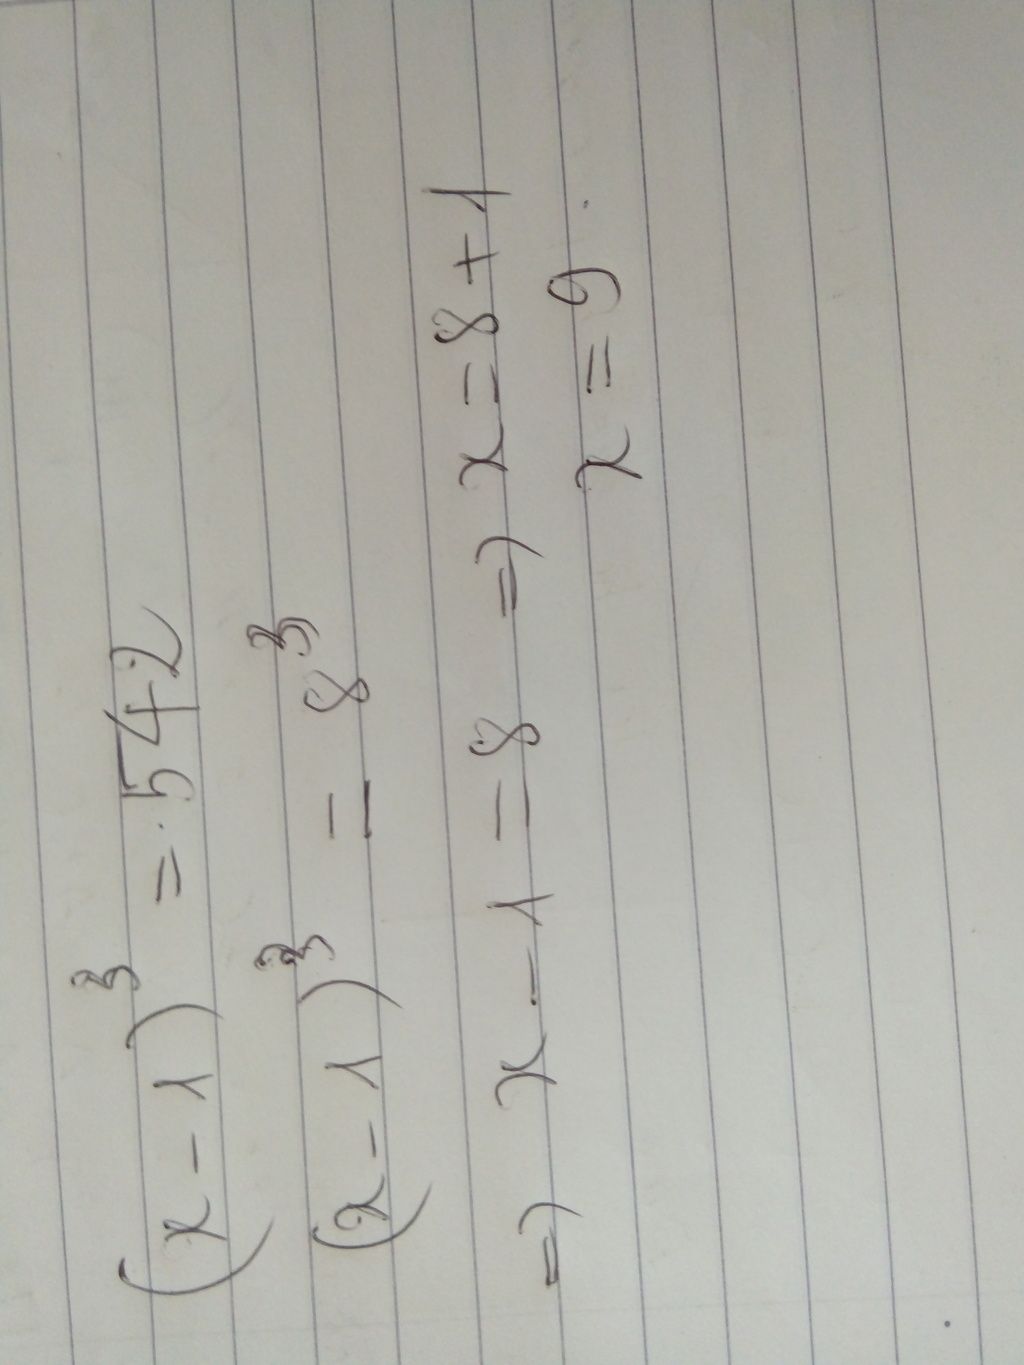 (x-1)³ = 542
(x-1)³ = 8³
=> x - 1 = 8 => x = 8 + 1
x = 9.